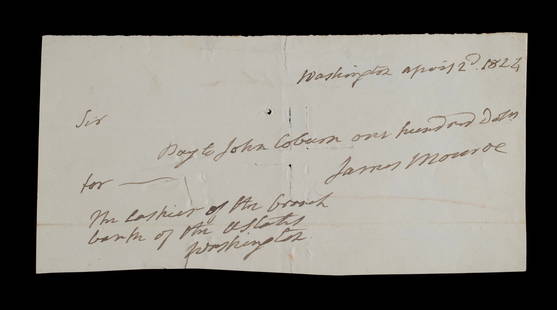 Washington April 2d. 1824
Sir
Pay to John Coburn one hundred Dolrs
for
James Monroe
The Cashier of the branch
bank of the UStates
Washington